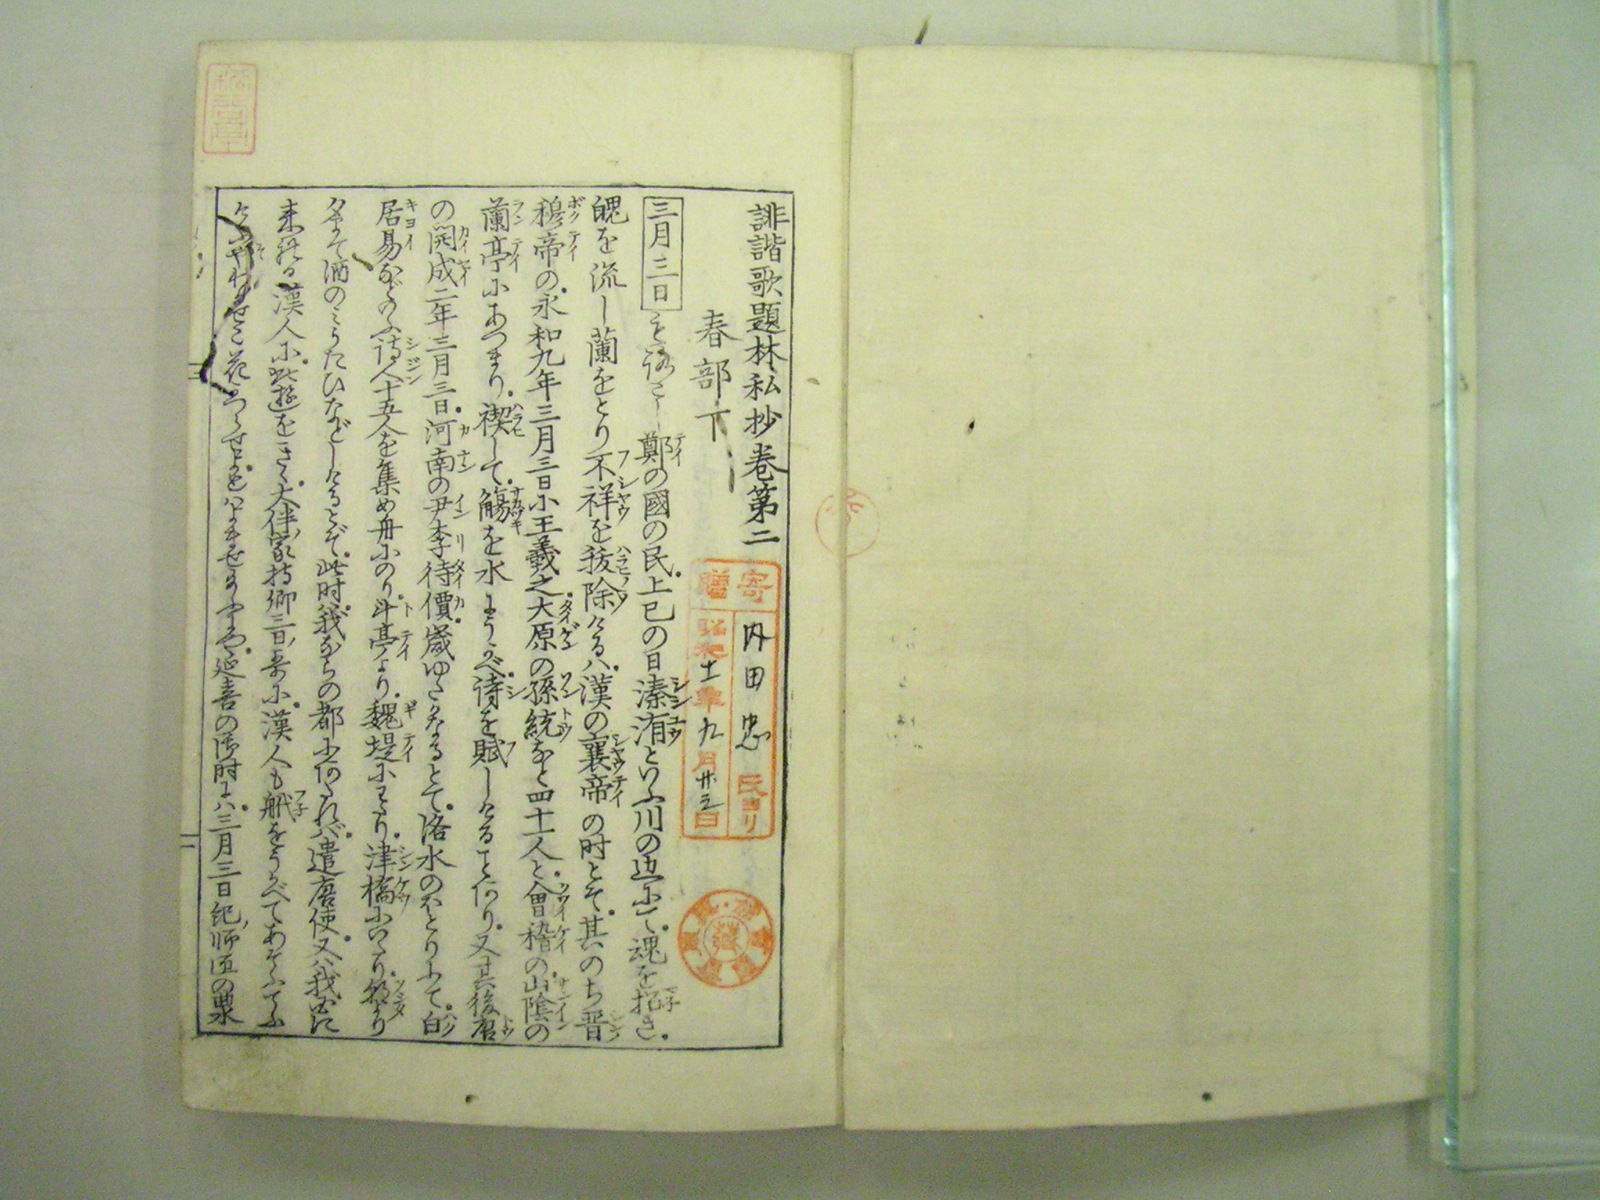 誹諧歌題林私抄卷第二
春部下
三月三日 もろこし鄭の國の民上巳の日溱洧といふ川の辺にて魂を招き
魄を流し蘭をとり不祥を祓除けるハ漢の襄帝の时とぞ其のち晋
穆帝の永和九年三月三日に王羲之大原の孫統など四十一人と會稽の山陰の
蘭亭にあつまり禊して觴を水にうかべ詩を賦しけることあり又其後唐
の開成二年三月三日河南の尹李待價歳ゆたかなるとて洛水のほとりにて白
居易などいふ詩人十五人を集め舟にのり斗亭より魏堤にわたり津橋にいたり
て酒のミうたひなどしけるとぞ此时我ならの都にあたれバ遣唐使又ハ我国に
来れる漢人に此遊をきく大伴家持卿三日哥に漢人も舩をうかべてあそぶてふ
けふぞわがせこ花かづらせよ 延喜の御时にハ三月三日紀師匠の泉
寄贈
内田忠 氏ヨリ
昭和十一年九月廿三日